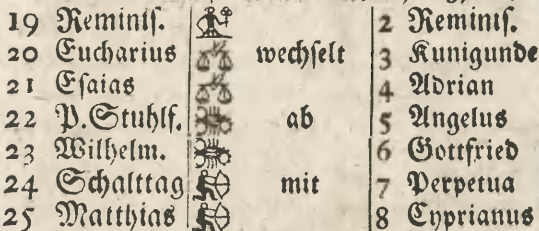 19 Reminiſ. 2 Reminiſ.
20 Eucharius wechſelt 3 Kunigunde
21 Eſaias 4 Adrian
22 P.Stuhlf. ab 5 Angelus
23 Wilhelm. 6 Gottfried
24 Schalttag mit 7 Perpetua
25 Matthias 8 Cyprianus